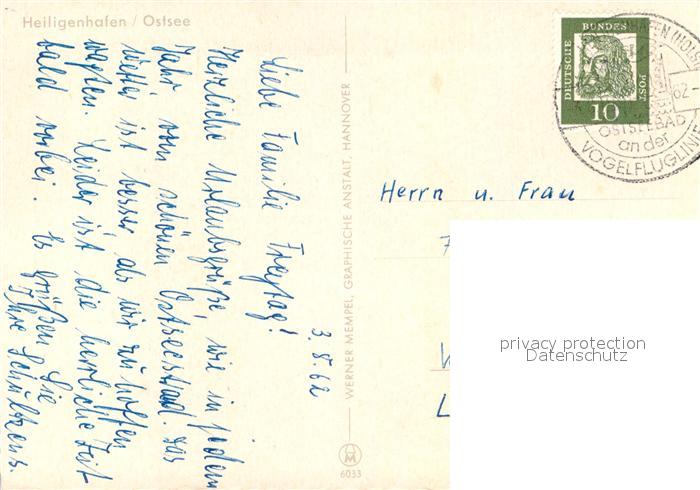 Heiligenhafen / Ostsee
3.8.62
Liebe Familie Freytag!
Herzliche Urlaubsgrüße, wie in jedem
Jahr vom schönen Ostseestrand. Das
Wetter ist besser, als wir zu hoffen
wagten. Leider ist die herrliche Zeit
bald vorbei. Es grüßen Sie
Ihre Schultzens.
WERNER MEMPEL, GRAPHISCHE ANSTALT, HANNOVER
M
6033
DEUTSCHE
BUNDES
POST
10
62-
OSTSEEBAD
an der
VOGELFLUGLINIE
Herrn u. Frau
privacy protection
Datenschutz